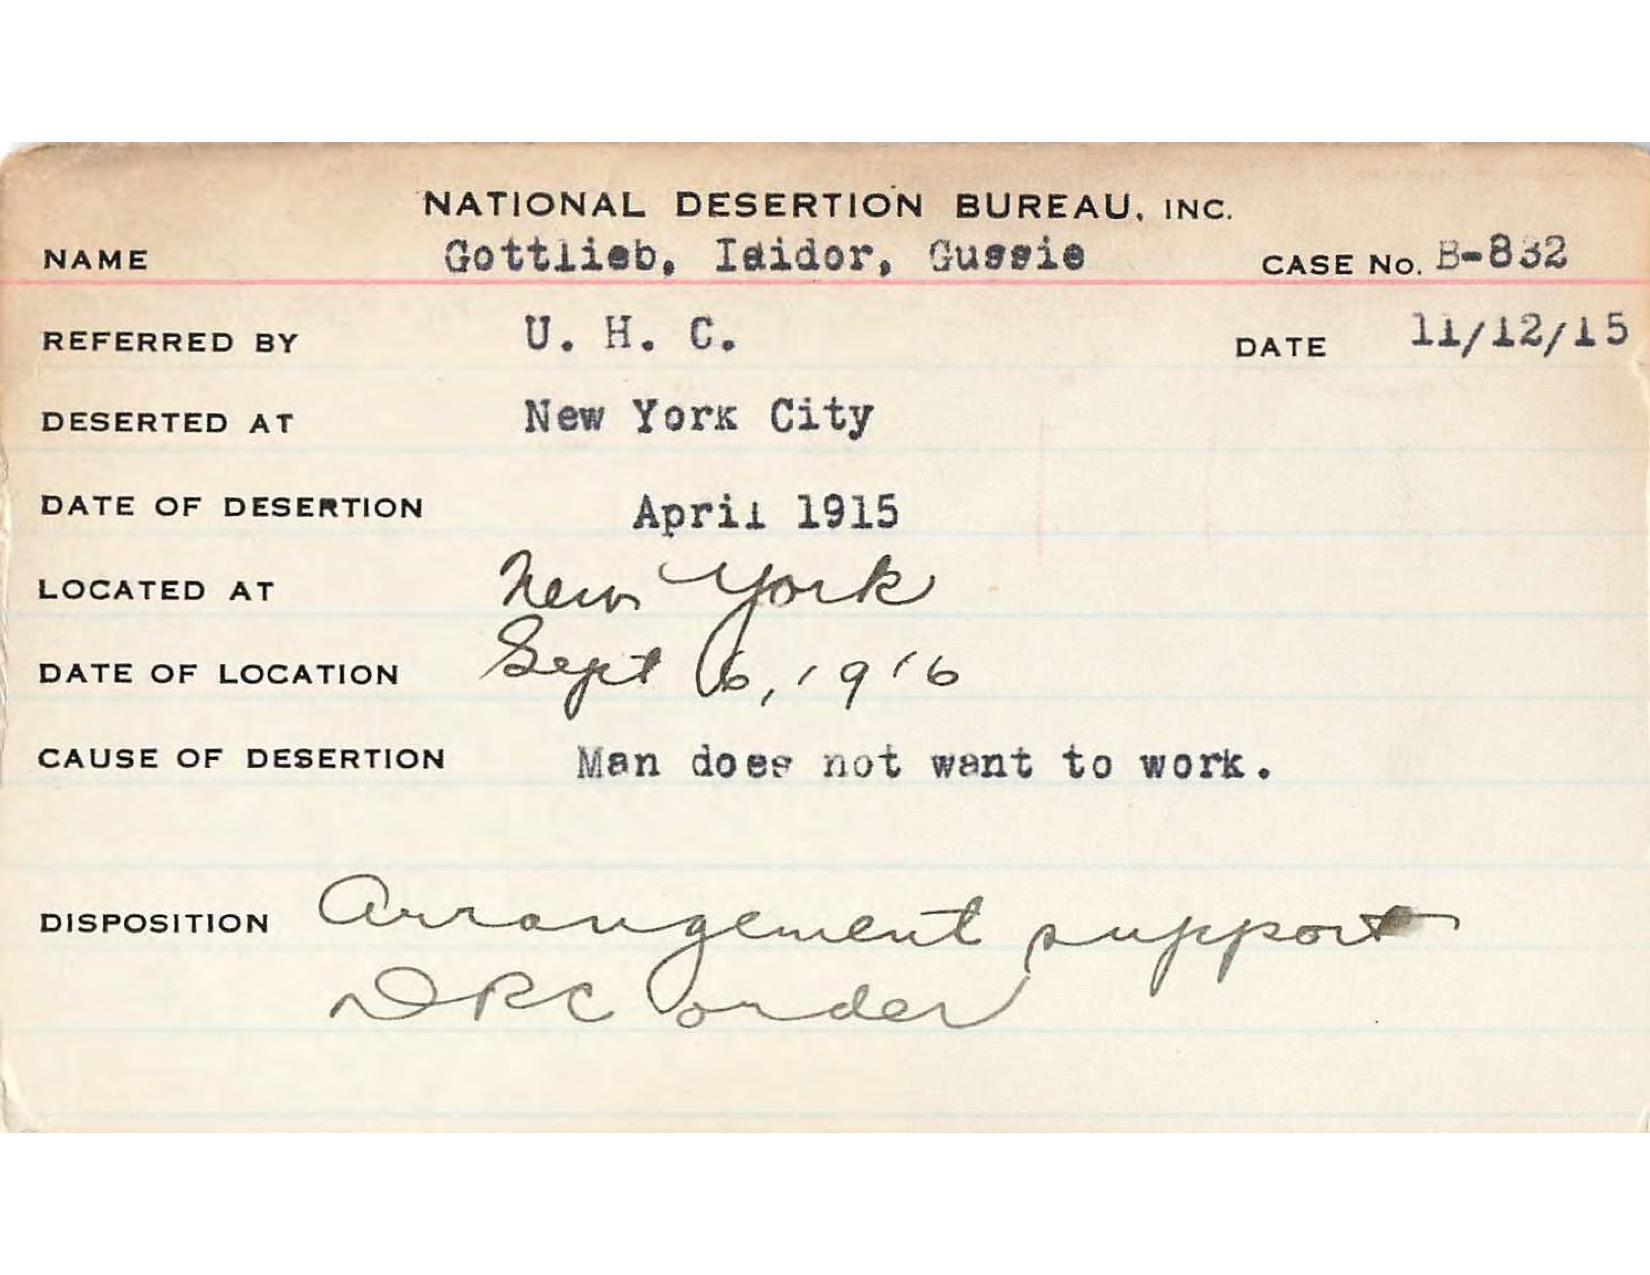 NATIONAL DESERTION BUREAU, INC.
NAME Gottlieb, Isidor, Gussie CASE No. B-832
REFERRED BY U. H. C. DATE 11/12/15
DESERTED AT New York City
DATE OF DESERTION April 1915
LOCATED AT New York
DATE OF LOCATION Sept 6, 1916
CAUSE OF DESERTION Man does not want to work.
DISPOSITION Arrangement support
DRC order